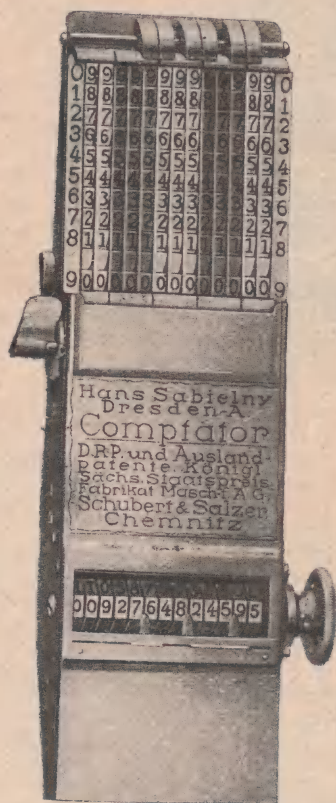 0 9 9 9 9 9 9 9 9 9 9 9 9 9 0
1 8 8 8 8 8 8 8 8 8 8 8 8 8 1
2 7 7 7 7 7 7 7 7 7 7 7 7 7 2
3 6 6 6 6 6 6 6 6 6 6 6 6 6 3
4 5 5 5 5 5 5 5 5 5 5 5 5 5 4
5 4 4 4 4 4 4 4 4 4 4 4 4 4 5
6 3 3 3 3 3 3 3 3 3 3 3 3 3 6
7 2 2 2 2 2 2 2 2 2 2 2 2 2 7
8 1 1 1 1 1 1 1 1 1 1 1 1 1 8
9 0 0 0 0 0 0 0 0 0 0 0 0 0 9
Hans Sabielny
Dresden-A
Comptator
D.R.P. und Ausland-
patente. Königl.
Sächs. Staatspreis.
Fabrikat Masch-f. A.G.
Schubert & Salzer
Chemnitz
0092764824595